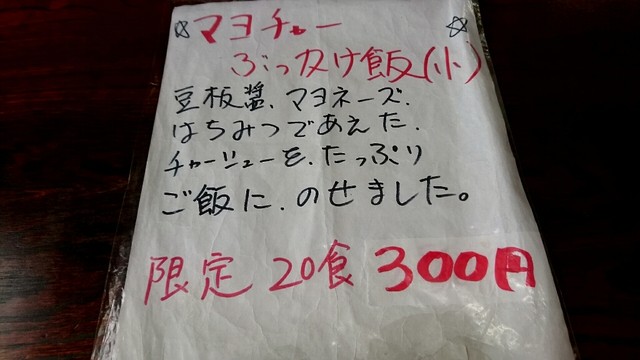 ☆マヨチャー☆
ぶっかけ飯(小)
豆板醤、マヨネーズ、
はちみつであえた、
チャーシューを、たっぷり
ご飯に、のせました。
限定 20食 300円